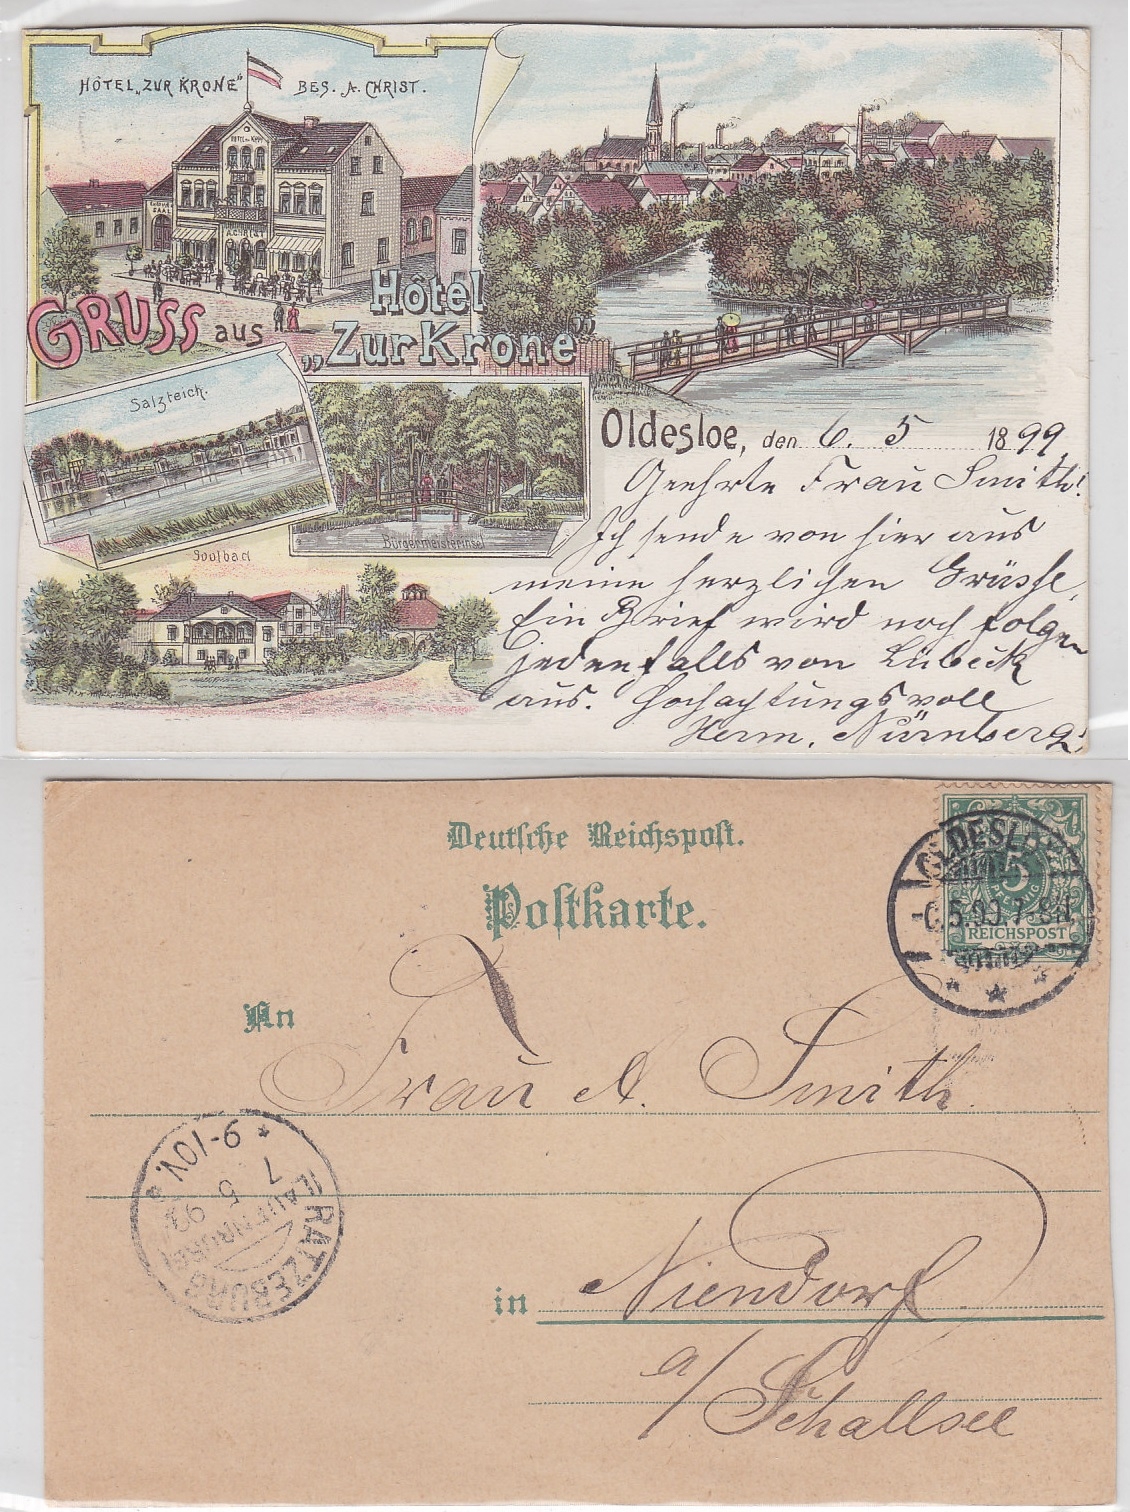 HÔTEL „ZUR KRONE“ BES. A. CHRIST.
HOTEL ZUR KRONE
SAAL
A. CHRIST
GRUSS aus
Hôtel
„Zur Krone“
Salzteich.
Bürgermeisterinsel
Soolbad
Oldesloe, den 6. 5 1899
Geehrte Frau Smith!
Ich sende von hier aus
meine herzlichen Grüsse,
Ein Brief wird noch folgen
jedenfalls von Lübeck
aus. Hochachtungsvoll
Herm. Nürnberg!
Deutsche Reichspost.
Postkarte.
OLDESLOE
-6.5.99.7-8N.
5
REICHSPOST
An
Frau A. Smith.
RATZEBURG
7
5
99
9-10V.
in Niendorf
a/ Schallsee